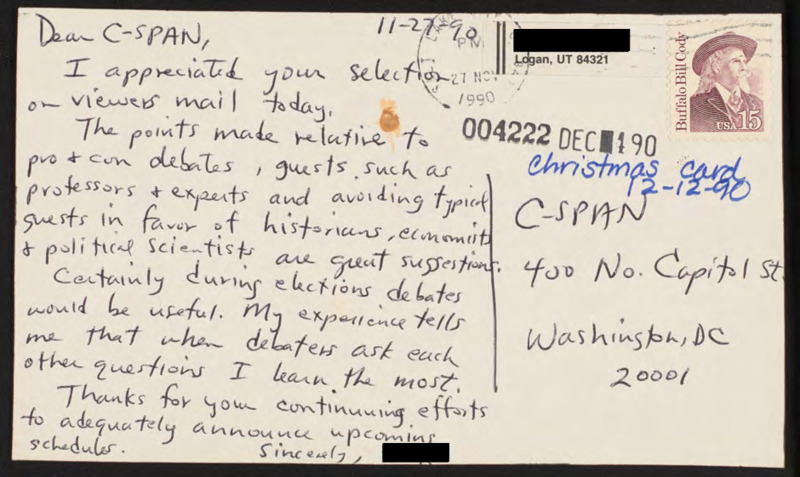 11-27-90
Dear C-SPAN,
I appreciated your selection
on viewers mail today.
The points made relative to
pro & con debates, guests such as
professors & experts and avoiding typical
guests in favor of historians, economists
& political scientists are great suggestions.
Certainly during elections debates
would be useful. My experience tells
me that when debaters ask each
other questions I learn the most.
Thanks for your continuing efforts
to adequately announce upcoming
schedules.
Sincerely,
PM
27 NOV
1990
Logan, UT 84321
Buffalo Bill Cody
USA 15
004222 DEC 4 90
Christmas card
12-12-90
C-SPAN
400 No. Capitol St.
Washington, DC
20001